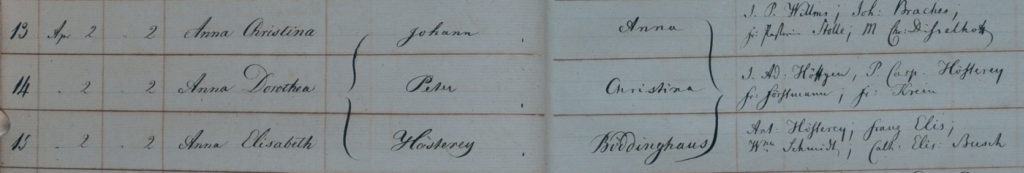 13 Ap 2 2 Anna Christina Johann Anna J. P. Wilms; Joh: Braches;
fr: Pastorin Stolle; M Chr: Düsselhoff
14 . 2 2 Anna Dorothea Peter Christina J. Ad: Höttgen, P. Casp. Hösterey
fr: Horstmann; fr: Krein
15 . 2 2 Anna Elisabeth Hösterey Böddinghaus Ant: Hösterey; franz Elis;
Wm Schmidt,; Cath: Elis: Busch